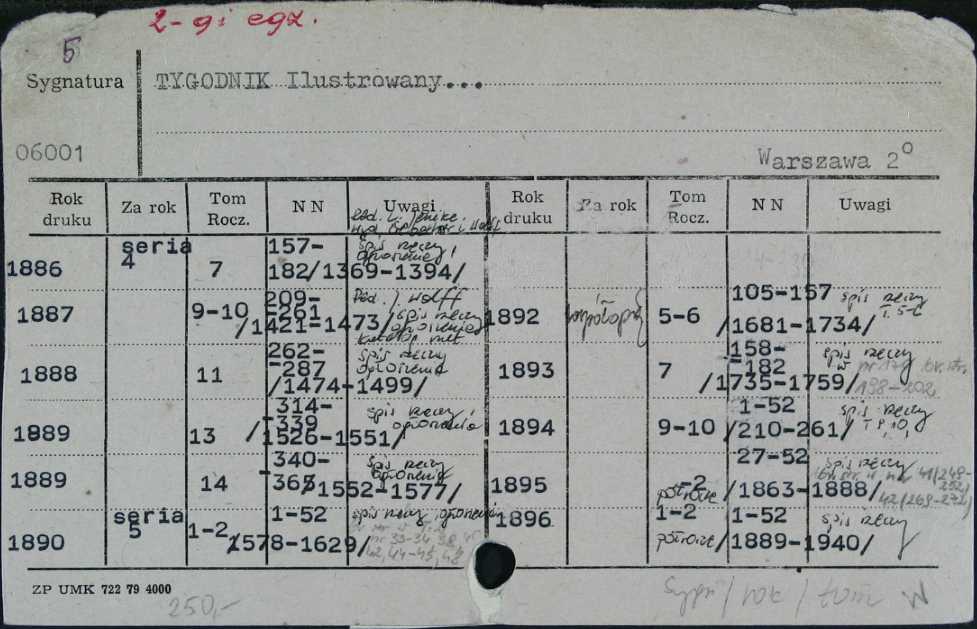 2-gi egz.
5
Sygnatura
TYGODNIK Ilustrowany...
06001
Warszawa 2°
Rok druku Za rok Tom Rocz. N N Uwagi Rok druku Za rok Tom Rocz. N N Uwagi
Red. L. Jenike.
1886 seria 4 7 157-182/1369-1394/ spis rzeczy,
1887 9-10 209-261/1421-1473/ Red. J. Wolff spis rzeczy
1888 11 262-287/1474-1499/ spis rzeczy
1889 13 314-339/1526-1551/ spis rzeczy,
1889 14 340-365/1552-1577/ spis rzeczy
1890 seria 5 1-2 1-52 1578-1629/ spis rzeczy
nr 33-34
42, 44-45, 48
1892 5-6 105-157/1681-1734/ spis rzeczy T. 5-6
1893 7 158-182/1735-1759/ spis rzeczy
198-202
1894 9-10 1-52/210-261/ spis rzeczy
1895 -2 półrocze 27-52/1863-1888/ spis rzeczy
1896 1-2 półrocze 1-52/1889-1940/ spis rzeczy
ZP UMK 722 79 4000
250,-